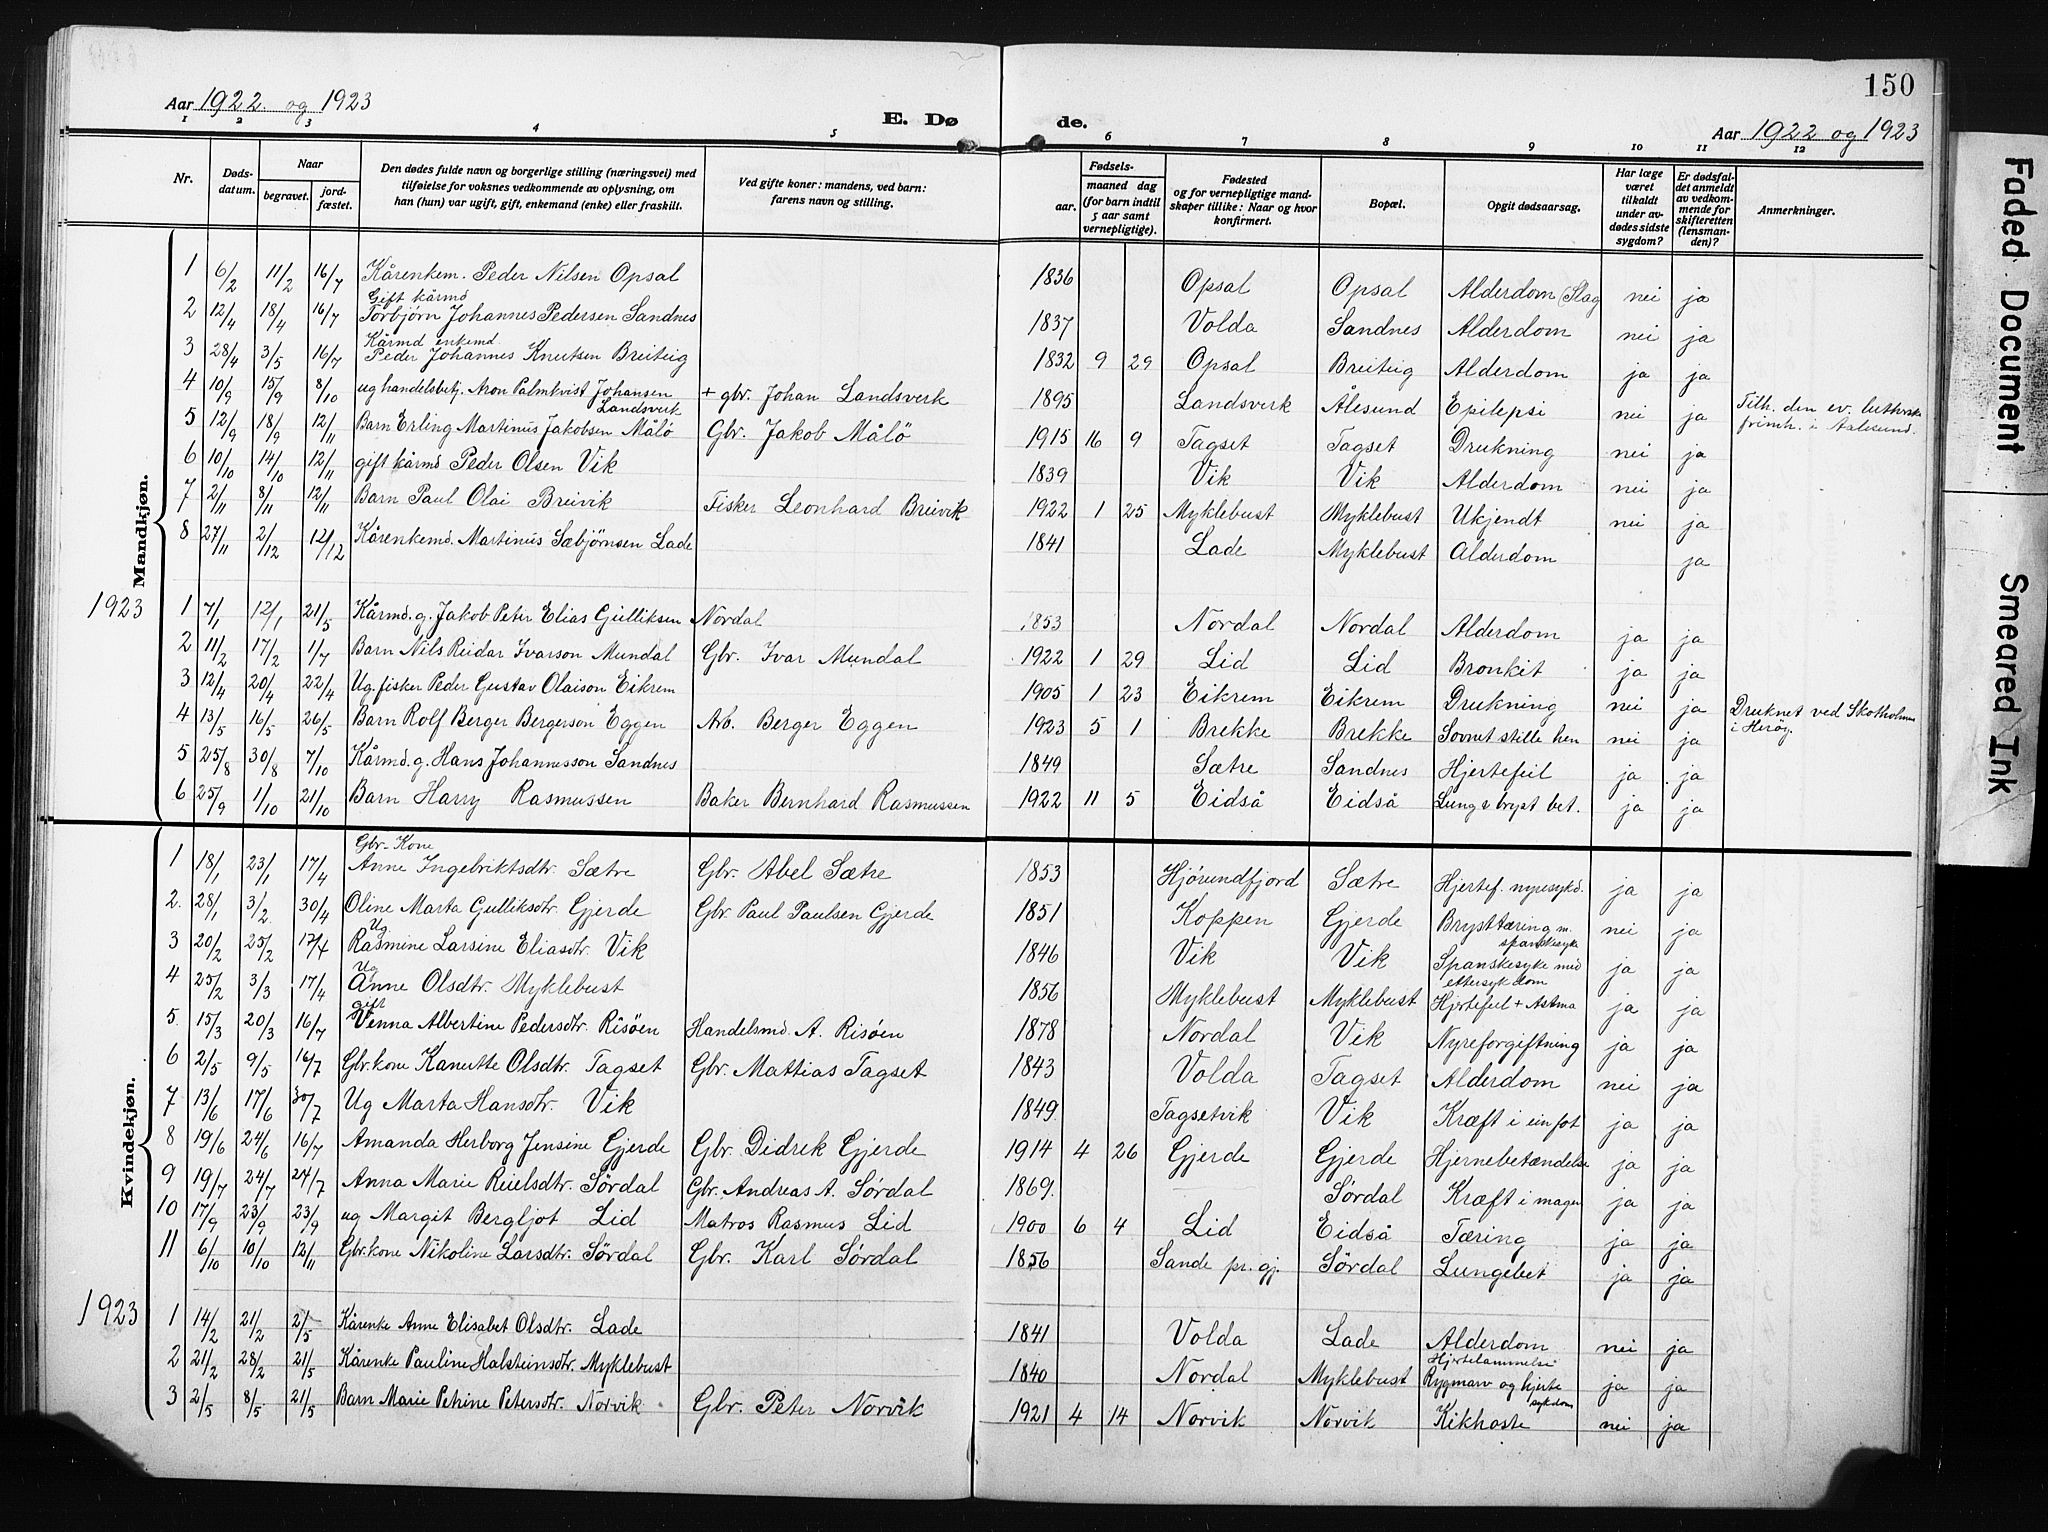 150
Aar 1922 og 1923
E. Dø de.
Aar 1922 og 1923
1 2 3 4 5 6 7 8 9 10 11 12
Nr.
Døds-datum.
Naar
begravet.
jord-fæstet.
Den dødes fulde navn og borgerlige stilling (næringsvei) med
tilføielse for voksnes vedkommende av oplysning, om
han (hun) var ugift, gift, enkemand (enke) eller fraskilt.
Ved gifte koner: mandens, ved barn:
farens navn og stilling.
Fødsels-
aar.
maaned dag
(for barn indtil
5 aar samt
vernepligtige).
Fødested
og for vernepligtige mand-
skaper tillike: Naar og hvor
konfirmert.
Bopæl.
Opgit dødsaarsag.
Har læge
været
tilkaldt
under av-
dødes sidste
sygdom?
Er dødsfal-
det anmeldt
av vedkom-
mende for
skifteretten
(lensman-
den)?
Anmerkninger.
Mandkjøn.
1 6/2 11/2 16/7 Kårenkem. Peder Nilsen Opsal 1836 Opsal Opsal Alderdom (Slag nei ja
2 12/4 18/4 16/7 Gift kårmd Torbjørn Johannes Pedersen Sandnes 1837 Volda Sandnes Alderdom nei ja
3 28/4 3/5 16/7 Kårmd enkemd Peder Johannes Knutsen Breiteig 1832 9 29 Opsal Breiteig Alderdom ja ja
4 10/9 15/9 8/10 ug handelsbetj. Aron Palmkvist Johansen Landsverk + gbr. Johan Landsverk 1895 Landsverk Ålesund Epilepsi nei ja Tilh. den ev. luthersk frimh. i Aalesund.
5 12/9 18/9 12/11 Barn Erling Martinus Jakobsen Målö Gbr. Jakob Målö 1915 16 9 Tagset Tagset Drukning nei ja
6 10/10 14/10 12/11 gift kårmd Peder Olsen Vik 1839 Vik Vik Alderdom nei ja
7 2/11 8/11 12/11 Barn Paul Olai Breivik Fisker Leonhard Breivik 1922 1 25 Myklebust Myklebust Ukjendt nei ja
8 27/11 2/12 12/12 Kårenkemd. Martinus Sæbjörnsen Lade 1841 Lade Myklebust Alderdom ja
1923
1 7/1 12/1 21/5 Kårmd. g. Jakob Peter Elias Gulliksen Nordal 1853 Nordal Nordal Alderdom ja ja
2 11/2 17/2 1/7 Barn Nils Reidar Ivarson Mundal Gbr. Ivar Mundal 1922 1 29 Lid Lid Bronkit ja ja
3 12/4 20/4 22/4 Ug. fisker Peder Gustav Olaison Eikrem 1905 1 23 Eikrem Eikrem Drukning nei ja Druknet ved Skotholmen i Herøy.
4 13/5 16/5 26/5 Barn Rolf Berger Bergerson Eggen Arb. Berger Eggen 1923 5 1 Brekke Brekke Sovnet stille hen nei ja
5 25/8 30/8 7/10 Kårmd. g. Hans Johannesson Sandnes 1849 Sætre Sandnes Hjertefeil ja ja
6 25/9 1/10 21/10 Barn Harry Rasmussen Baker Bernhard Rasmussen 1922 11 5 Eidså Eidså Lung & bryst bet. ja ja
Kvindekjøn.
1 18/1 23/1 17/4 Gbr. Kone Anne Ingebriktsdtr. Sætre Gbr. Abel Sætre 1853 Hjörundfjord Sætre Hjertef. nyresykd. ja ja
2. 28/1 3/2 30/4 Oline Marta Gulliksdtr. Gjerde Gbr Paul Paulsen Gjerde 1851 Koppen Gjerde Brysttæring m. spanskesyke nei ja
3 20/2 25/2 17/4 Ug Rasmine Larsine Eliasdtr. Vik 1846 Vik Vik Spanskesyke med ettersykdom ja ja
4 25/2 3/3 17/4 Ug Anne Olsdtr. Myklebust 1856 Myklebust Myklebust Hjertefeil + Astma ja ja
5 15/3 20/3 16/7 gift Venna Albertine Pedersdtr. Risöen Handelsmd. A. Risöen 1878 Nordal Vik Nyreforgiftning ja ja
6 2/5 9/5 16/7 Gbr. kone Kanutte Olsdtr. Tagset Gbr. Mattias Tagset 1843 Volda Tagset Alderdom nei ja
7 13/6 17/6 30/7 Ug Marta Hansdtr. Vik 1849 Tagsetvik Vik Kræft i ein fot ja ja
8 19/6 24/6 16/7 Amanda Herborg Jensine Gjerde Gbr. Didrik Gjerde 1914 4 26 Gjerde Gjerde Hjernebetændelse ja ja
9 19/7 24/7 24/7 Anna Marie Reielsdtr. Sördal Gbr. Andreas A. Sördal 1869. Sördal Kræft i magen ja ja
10 17/9 23/9 23/9 ug Margit Bergljot Lid Matros Rasmus Lid 1900 6 4 Lid Eidså Tæring ja ja
11 6/10 10/10 12/11 Gbr. kone Nikoline Larsdtr. Sördal Gbr. Karl Sördal 1856 Sande pr. gj. Sördal Lungebet ja ja
1923
1 14/2 21/2 2/5 Kårenke Anne Elisabet Olsdtr. Lade 1841 Volda Lade Alderdom nei ja
2 21/2 28/2 21/5 Kårenke Pauline Halsteinsdtr. Myklebust 1840 Nordal Myklebust Hjertelammelse Rygmarv og hjerte sykdom ja ja
3 2/5 8/5 21/5 Barn Marie Petrine Petersdtr. Norvik Gbr. Peter Norvik 1921 4 14 Norvik Norvik Kikhoste nei ja
Faded Document
Smeared Ink